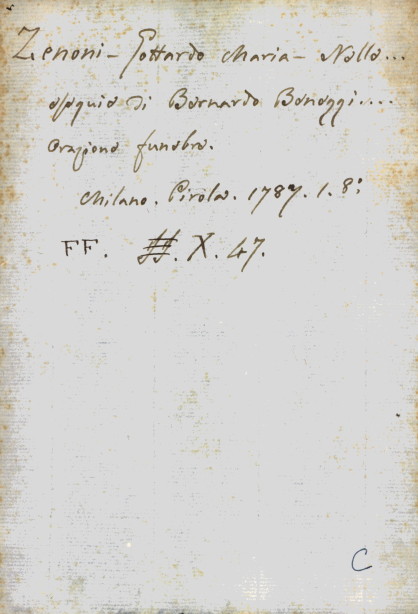 Zenoni - Gottardo Maria - Nelle...
esequie di Bernardo Benaggi....
Orazione funebre.
Milano. Pirola. 1787. 1. 8:
FF. X. 47.
C